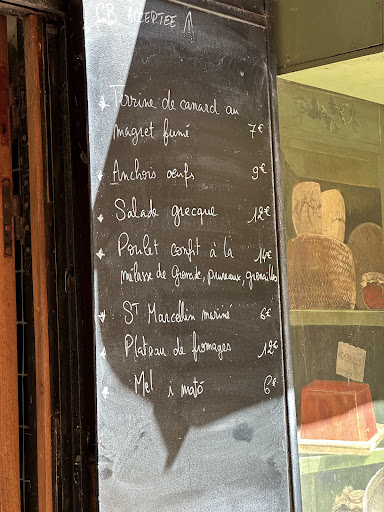 CB ACCEPTEE
Terrine de canard au
magret fumé 7€
Anchois œufs 9€
Salade grecque 12€
Poulet confit à la 14€
mélasse de Grenade, pruneaux, grenailles
ST Marcellin mariné 6€
Plateau de fromages 12€
Mel i mató 6€